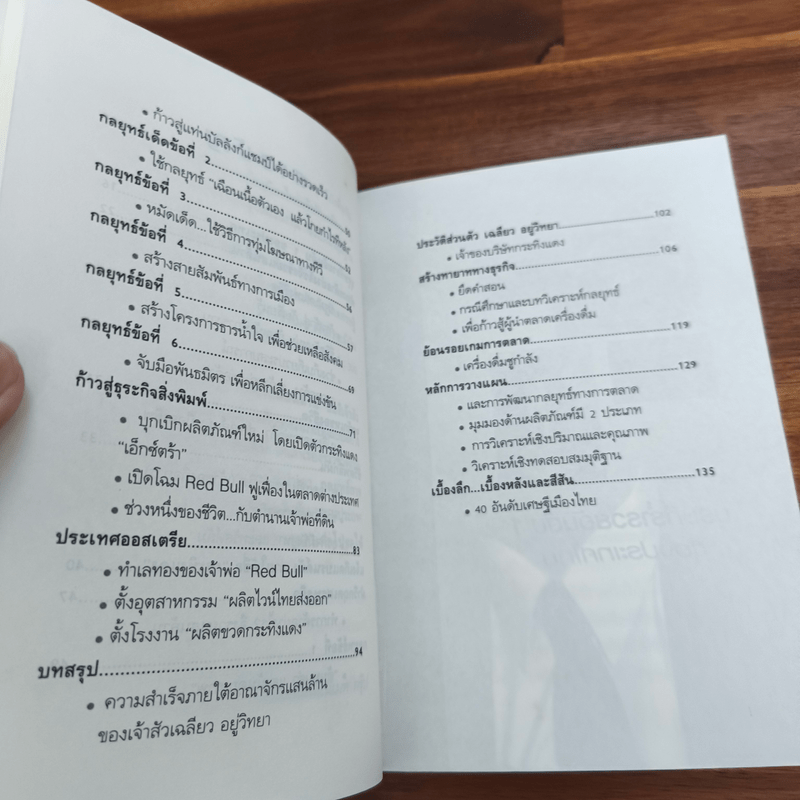 • ก้าวสู่แท่นบัลลังก์แชมป์ได้อย่างรวดเร็ว
กลยุทธ์เด็ดข้อที่ 2
• ใช้กลยุทธ์ "เฉือนเนื้อตัวเอง แล้วโกยกำไรทีหลัง"
กลยุทธ์ข้อที่ 3
• หมัดเด็ด...ใช้วิธีการทุ่มโฆษณาทางทีวี
กลยุทธ์ข้อที่ 4
• สร้างสายสัมพันธ์ทางการเมือง
กลยุทธ์ข้อที่ 5 57
• สร้างโครงการธารน้ำใจ เพื่อช่วยเหลือสังคม
กลยุทธ์ข้อที่ 6 69
• จับมือพันธมิตร เพื่อหลีกเลี่ยงการแข่งขัน
ก้าวสู่ธุระกิจสิ่งพิมพ์ 71
• บุกเบิกผลิตภัณฑ์ใหม่ โดยเปิดตัวกระทิงแดง
"เอ็กซ์ตร้า"
• เปิดโฉม Red Bull ฟูเฟื่องในตลาดต่างประเทศ
• ช่วงหนึ่งของชีวิต...กับตำนานเจ้าพ่อที่ดิน
ประเทศออสเตรีย 83
• ทำเลทองของเจ้าพ่อ "Red Bull"
• ตั้งอุตสาหกรรม "ผลิตไวน์ไทยส่งออก"
• ตั้งโรงงาน "ผลิตขวดกระทิงแดง"
บทสรุป 94
• ความสำเร็จภายใต้อาณาจักรแสนล้าน
ของเจ้าสัวเฉลียว อยู่วิทยา
ประวัติส่วนตัว เฉลียว อยู่วิทยา 102
• เจ้าของบริษัทกระทิงแดง
สร้างทายาททางธุรกิจ 106
• ยึดคำสอน
• กรณีศึกษาและบทวิเคราะห์กลยุทธ์
• เพื่อก้าวสู่ผู้นำตลาดเครื่องดื่ม
ย้อนรอยเกมการตลาด 119
• เครื่องดื่มชูกำลัง
หลักการวางแผน 129
• และการพัฒนากลยุทธ์ทางการตลาด
• มุมมองด้านผลิตภัณฑ์มี 2 ประเภท
• การวิเคราะห์เชิงปริมาณและคุณภาพ
• วิเคราะห์เชิงทดสอบสมมุติฐาน
เบื้องลึก...เบื้องหลังและสีสัน 135
• 40 อันดับเศรษฐีเมืองไทย